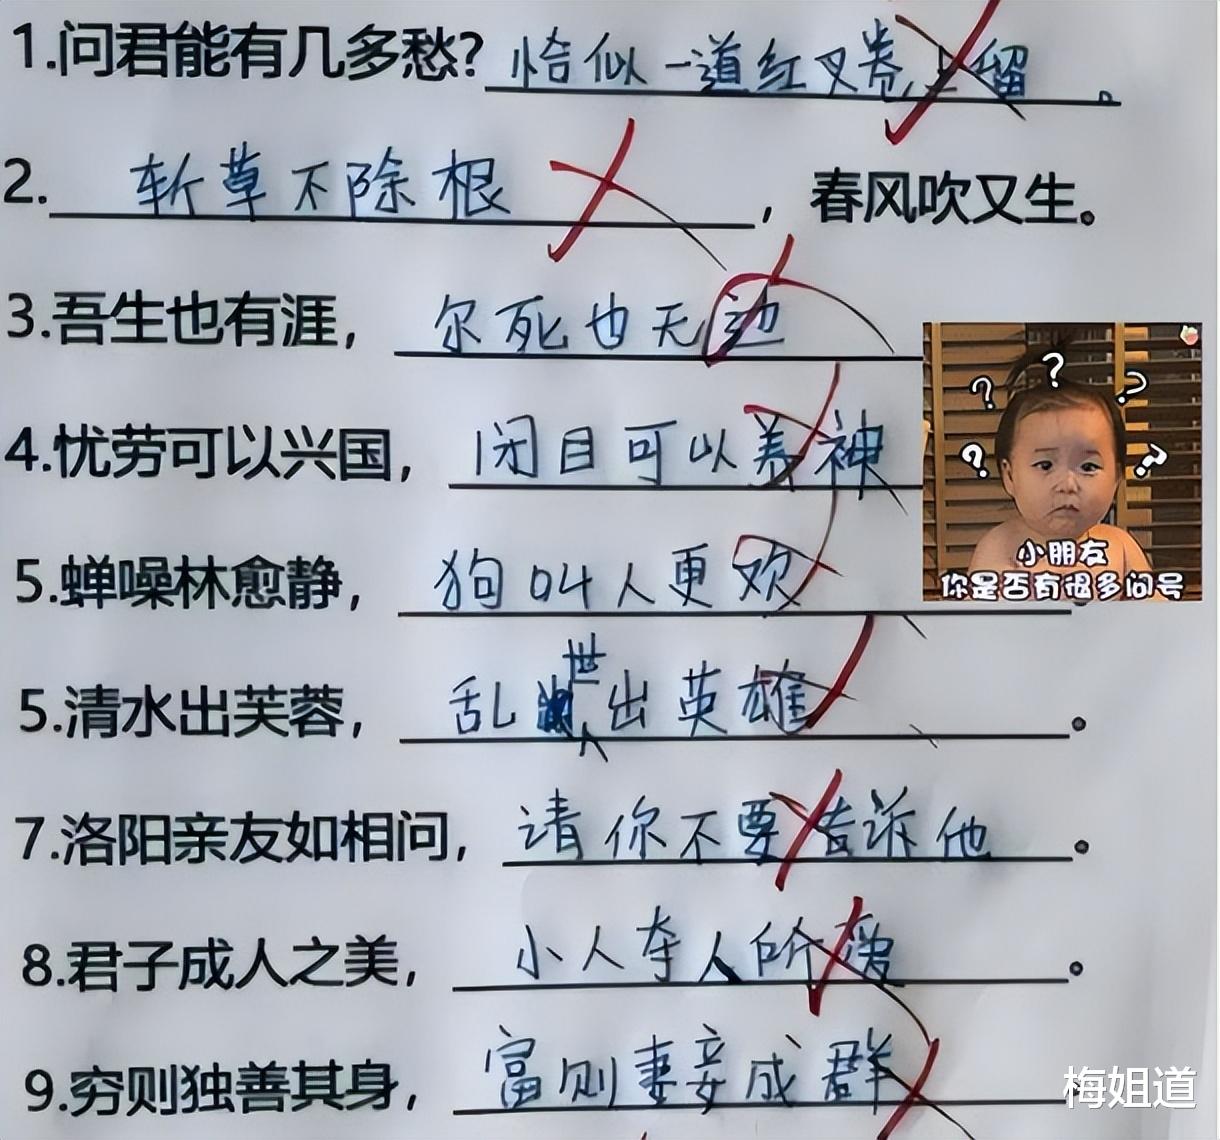 1.问君能有几多愁?恰似一道红叉卷上留。
2.斩草不除根,春风吹又生。
3.吾生也有涯,尔死也无边
4.忧劳可以兴国,闭目可以养神
5.蝉噪林愈静,狗叫人更欢
5.清水出芙蓉,乱世出英雄。
7.洛阳亲友如相问,请你不要告诉他。
8.君子成人之美,小人夺人所爱。
9.穷则独善其身,富则妻妾成群
? ? ? ? ?
小朋友
你是否有很多问号
梅姐道